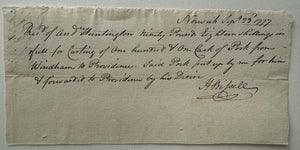 Norwich Sepr 23d 1777
Recd of Andw Huntington Ninety Pounds Eighteen Shillings in
full for Carting of One hundred & One Cask of Pork from
Windham to Providence Said Pork put up by me for him
& forwarded to Providence by his Desire
A Bissell